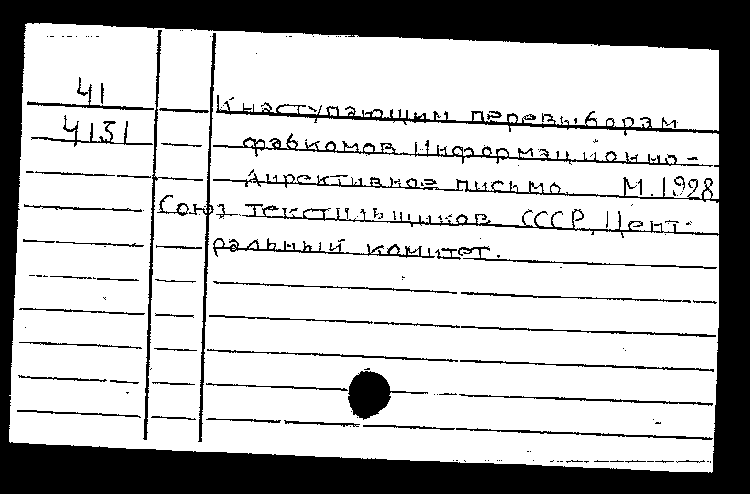 41
К наступающим перевыборам
4131
фабкомов. Информационно-
директивное письмо. М. 1928
Союз текстильщиков СССР, Цент-
ральный комитет.